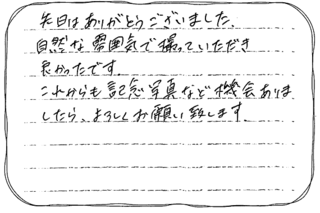 先日はありがとうございました。
自然な雰囲気で撮っていただき
良かったです。
これからも記念写真など機会ありま
したら、よろしくお願い致します。